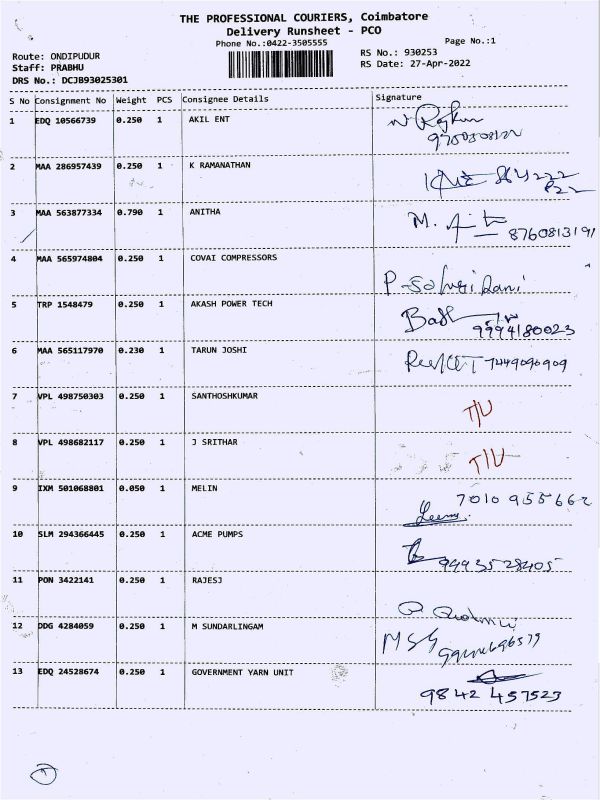 THE PROFESSIONAL COURIERS, Coimbatore
Delivery Runsheet - PCO
Phone No.:0422-3505555
Page No.:1
Route: ONDIPUDUR
RS No.: 930253
Staff: PRABHU
RS Date: 27-Apr-2022
DRS No.: DCJB93025301
S No Consignment No Weight PCS Consignee Details Signature
1 EDQ 10566739 0.250 1 AKIL ENT
2 MAA 286957439 0.250 1 K RAMANATHAN
3 MAA 563877334 0.790 1 ANITHA M.
8760813191
4 MAA 565974804 0.250 1 COVAI COMPRESSORS
5 TRP 1548479 0.250 1 AKASH POWER TECH
9994180023
6 MAA 565117970 0.230 1 TARUN JOSHI 7449090909
7 VPL 498750303 0.250 1 SANTHOSHKUMAR T/U
8 VPL 498682117 0.250 1 J SRITHAR T/U
9 IXM 501068801 0.050 1 MELIN 7010 955662
10 SLM 294366445 0.250 1 ACME PUMPS
9993528405
11 PON 3422141 0.250 1 RAJESJ
12 DDG 4284059 0.250 1 M SUNDARLINGAM
13 EDQ 24528674 0.250 1 GOVERNMENT YARN UNIT
9842 457523